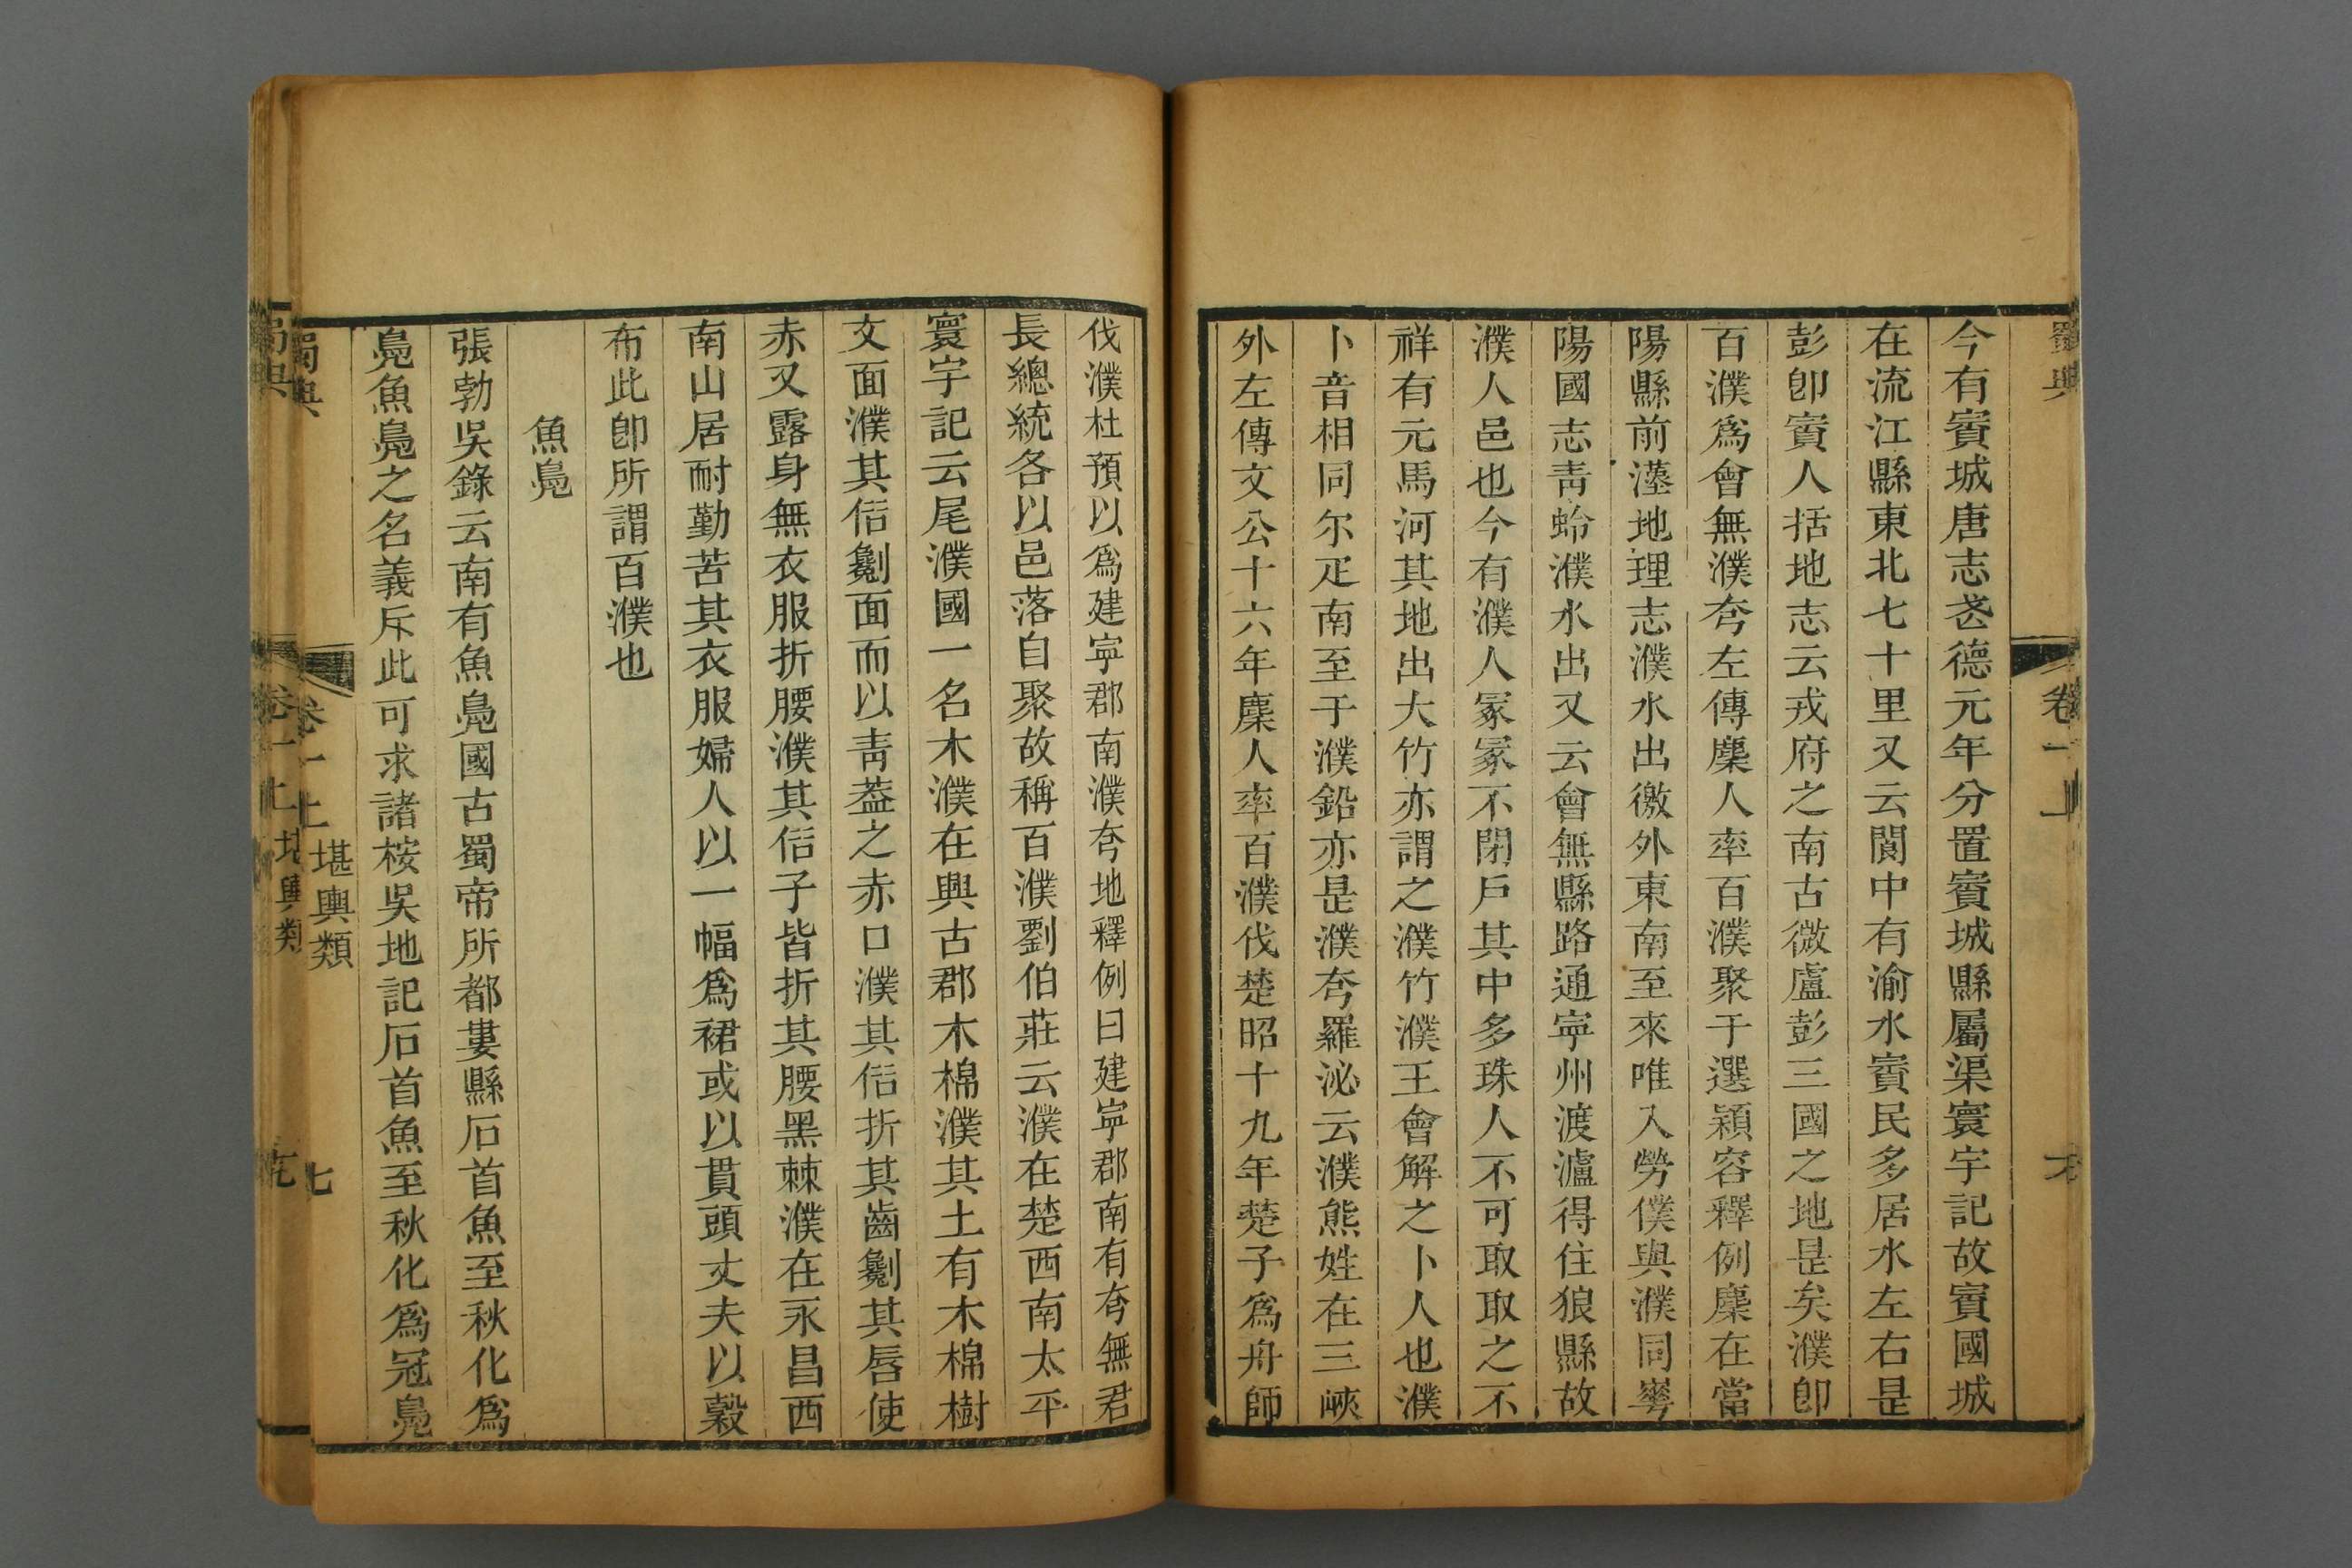 蜀典
卷一上
今有賨城唐志武德元年分置賨城縣屬渠寰宇記故賨國城
在流江縣東北七十里又云閬中有渝水賨民多居水左右是
彭卽賨人括地志云戎府之南古微盧彭三國之地是矣濮卽
百濮爲會無濮夸左傳麇人率百濮聚于選穎容釋例麇在當
陽縣前漢地理志濮水出徼外東南至來唯入勞僕與濮同
陽國志靑蛉濮水出又云會無縣路通寧州渡瀘得住狼縣故
濮人邑也今有濮人冢冢不閉戶其中多珠人不可取取之不
祥有元馬河其地出大竹亦謂之濮竹濮王會解之卜人也濮
卜音相同尔疋南至于濮鉛亦是濮夸羅泌云濮熊姓在三峽
外左傳文公十六年麇人率百濮伐楚昭十九年楚子爲舟師
伐濮杜預以爲建寧郡南濮夸地釋例曰建寧郡南有夸無君
長總統各以邑落自聚故稱百濮劉伯莊云濮在楚西南太平
寰宇記云尾濮國一名木濮在興古郡木棉濮其土有木棉樹
文面濮其俗劖面而以靑葢之赤口濮其俗折其齒劖其唇使
赤又露身無衣服折腰濮其俗子皆折其腰黑棘濮在永昌西
南山居耐勤苦其衣服婦人以一幅爲裙或以貫頭丈夫以穀
布此卽所謂百濮也
魚鳧
張勃吳錄云南有魚鳧國古蜀帝所都婁縣石首魚至秋化爲
鳧魚鳧之名義斥此可求諸桉吳地記石首魚至秋化爲冠鳧
蜀典
卷一上
堪輿類
七